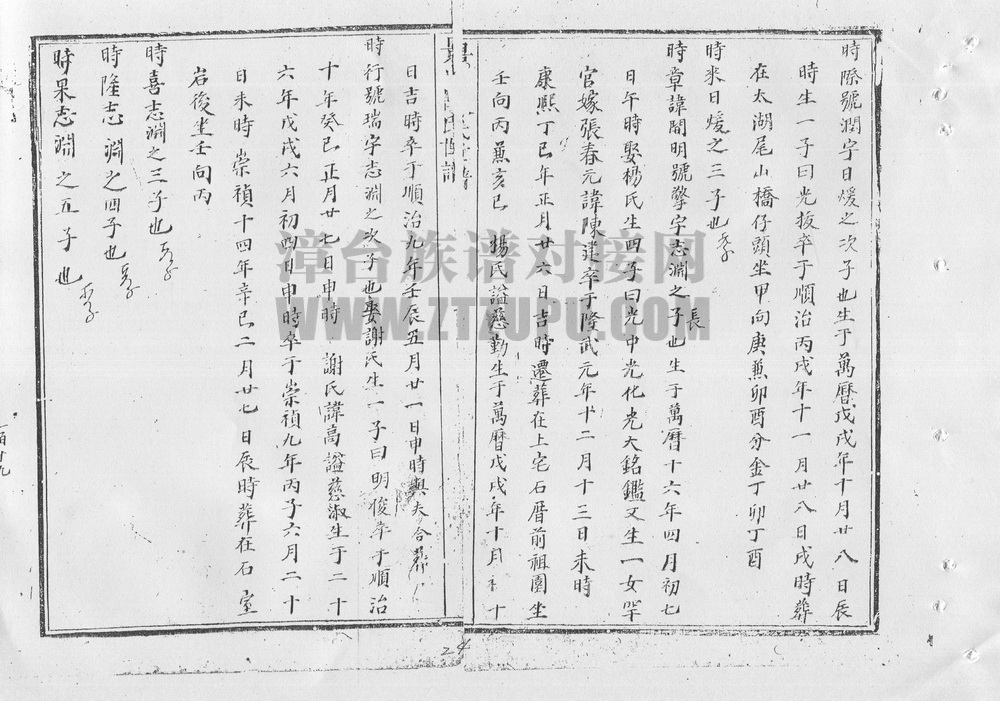 時際號潤字日煖之次子也生于萬曆戊戌年十月廿八日辰
時生一子曰光拔卒于順治丙戌年十一月廿八日戌時葬
在太湖尾山橋仔頭坐甲向庚兼卯酉分金丁卯丁酉
時來日煖之三子也
時章諱闇明號擎字志淵之長子也生于萬曆十六年四月初七
日午時娶楊氏生四子曰光中光化光大銘鑑又生一女罕
官嫁張春元諱陳建卒于隆武元年十二月十三日未時
康熙丁巳年正月廿六日吉時遷葬在上宅石厝前祖園坐
壬向丙兼亥巳 楊氏謚慈勤生于萬曆戊戌年十月初十
日吉時卒于順治九年壬辰五月廿一日申時與夫合葬
時行號瑞字志淵之次子也娶謝氏生一子曰明俊卒于順治
十年癸巳正月廿七日申時 謝氏諱高謚慈淑生于二十
六年戊戌六月初四日申時卒于崇禎九年丙子六月二十
日未時 崇禎十四年辛巳二月廿七日辰時葬在石室
岩後坐壬向丙
時喜志淵之三子也
時隆志淵之四子也
時果志淵之五子也
24
漳台族谱对接网
WWW.ZTZUPU.COM